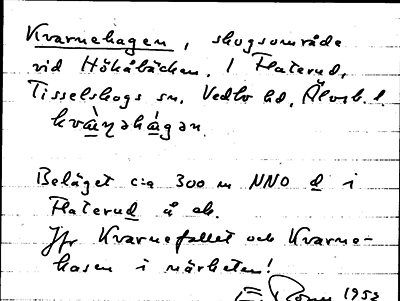 Kvarnehagen, skogsområde
vid Hökåbäcken. / Flaterud,
Tisselskogs sn. Vedbo hd, Älvsb. l.
kvà̠ŋəhá̠gən.
Beläget c:a 300 m NNO d i
Flaterud å ek.
Jfr Kvarnefallet och Kvarne-
hasen i närheten!
1952